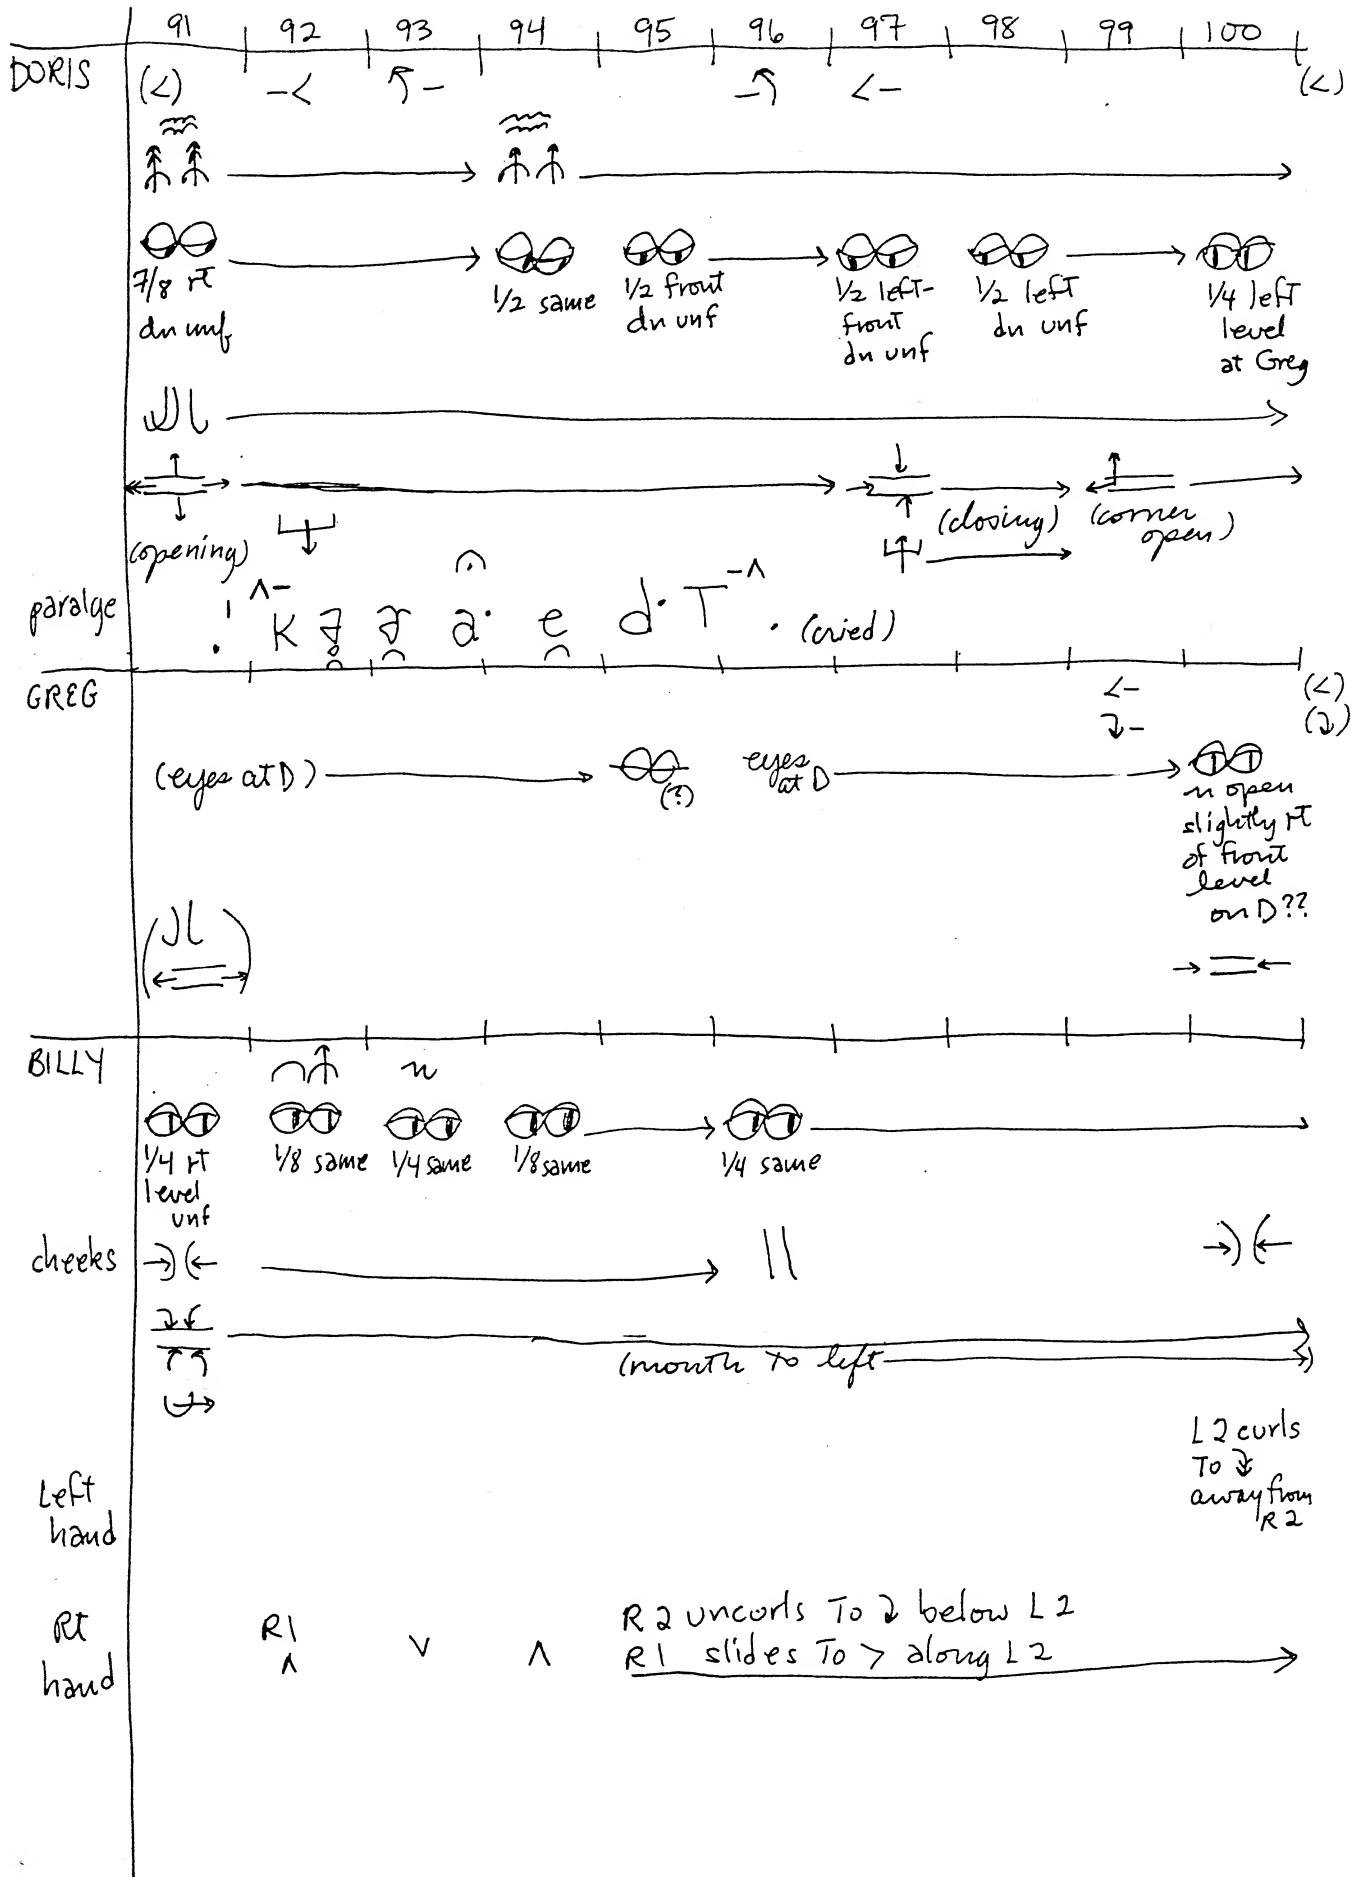 91 92 93 94 95 96 97 98 99 100
DORIS
(<) -< < - (<)
7/8 rt
dn unf
1/2 same
1/2 front
dn unf
1/2 left-
front
dn unf
1/2 left
dn unf
1/4 left
level
at Greg
(opening)
(closing)
(corner
open)
paralge
(cried)
GREG
<- (<)
(eyes at D)
(?)
eyes
at D
n open
slightly rt
of front
level
on D??
BILLY
n
1/4 rt
level
unf
1/8 same
1/4 same
1/8 same
1/4 same
cheeks
(mouth to left
Left
hand
L2 curls
To
away from
R2
Rt
hand
R1
^ v ^
R2 uncurls To below L2
R1 slides To > along L2